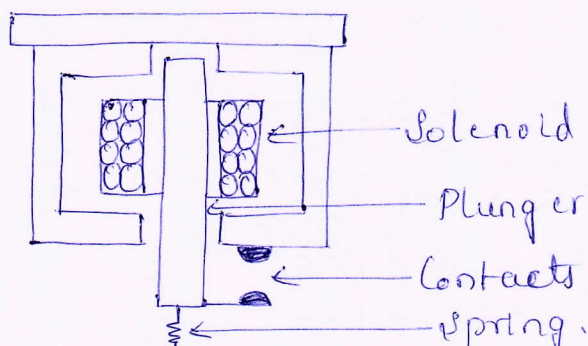 Solenoid
Plunger
Contacts
Spring.